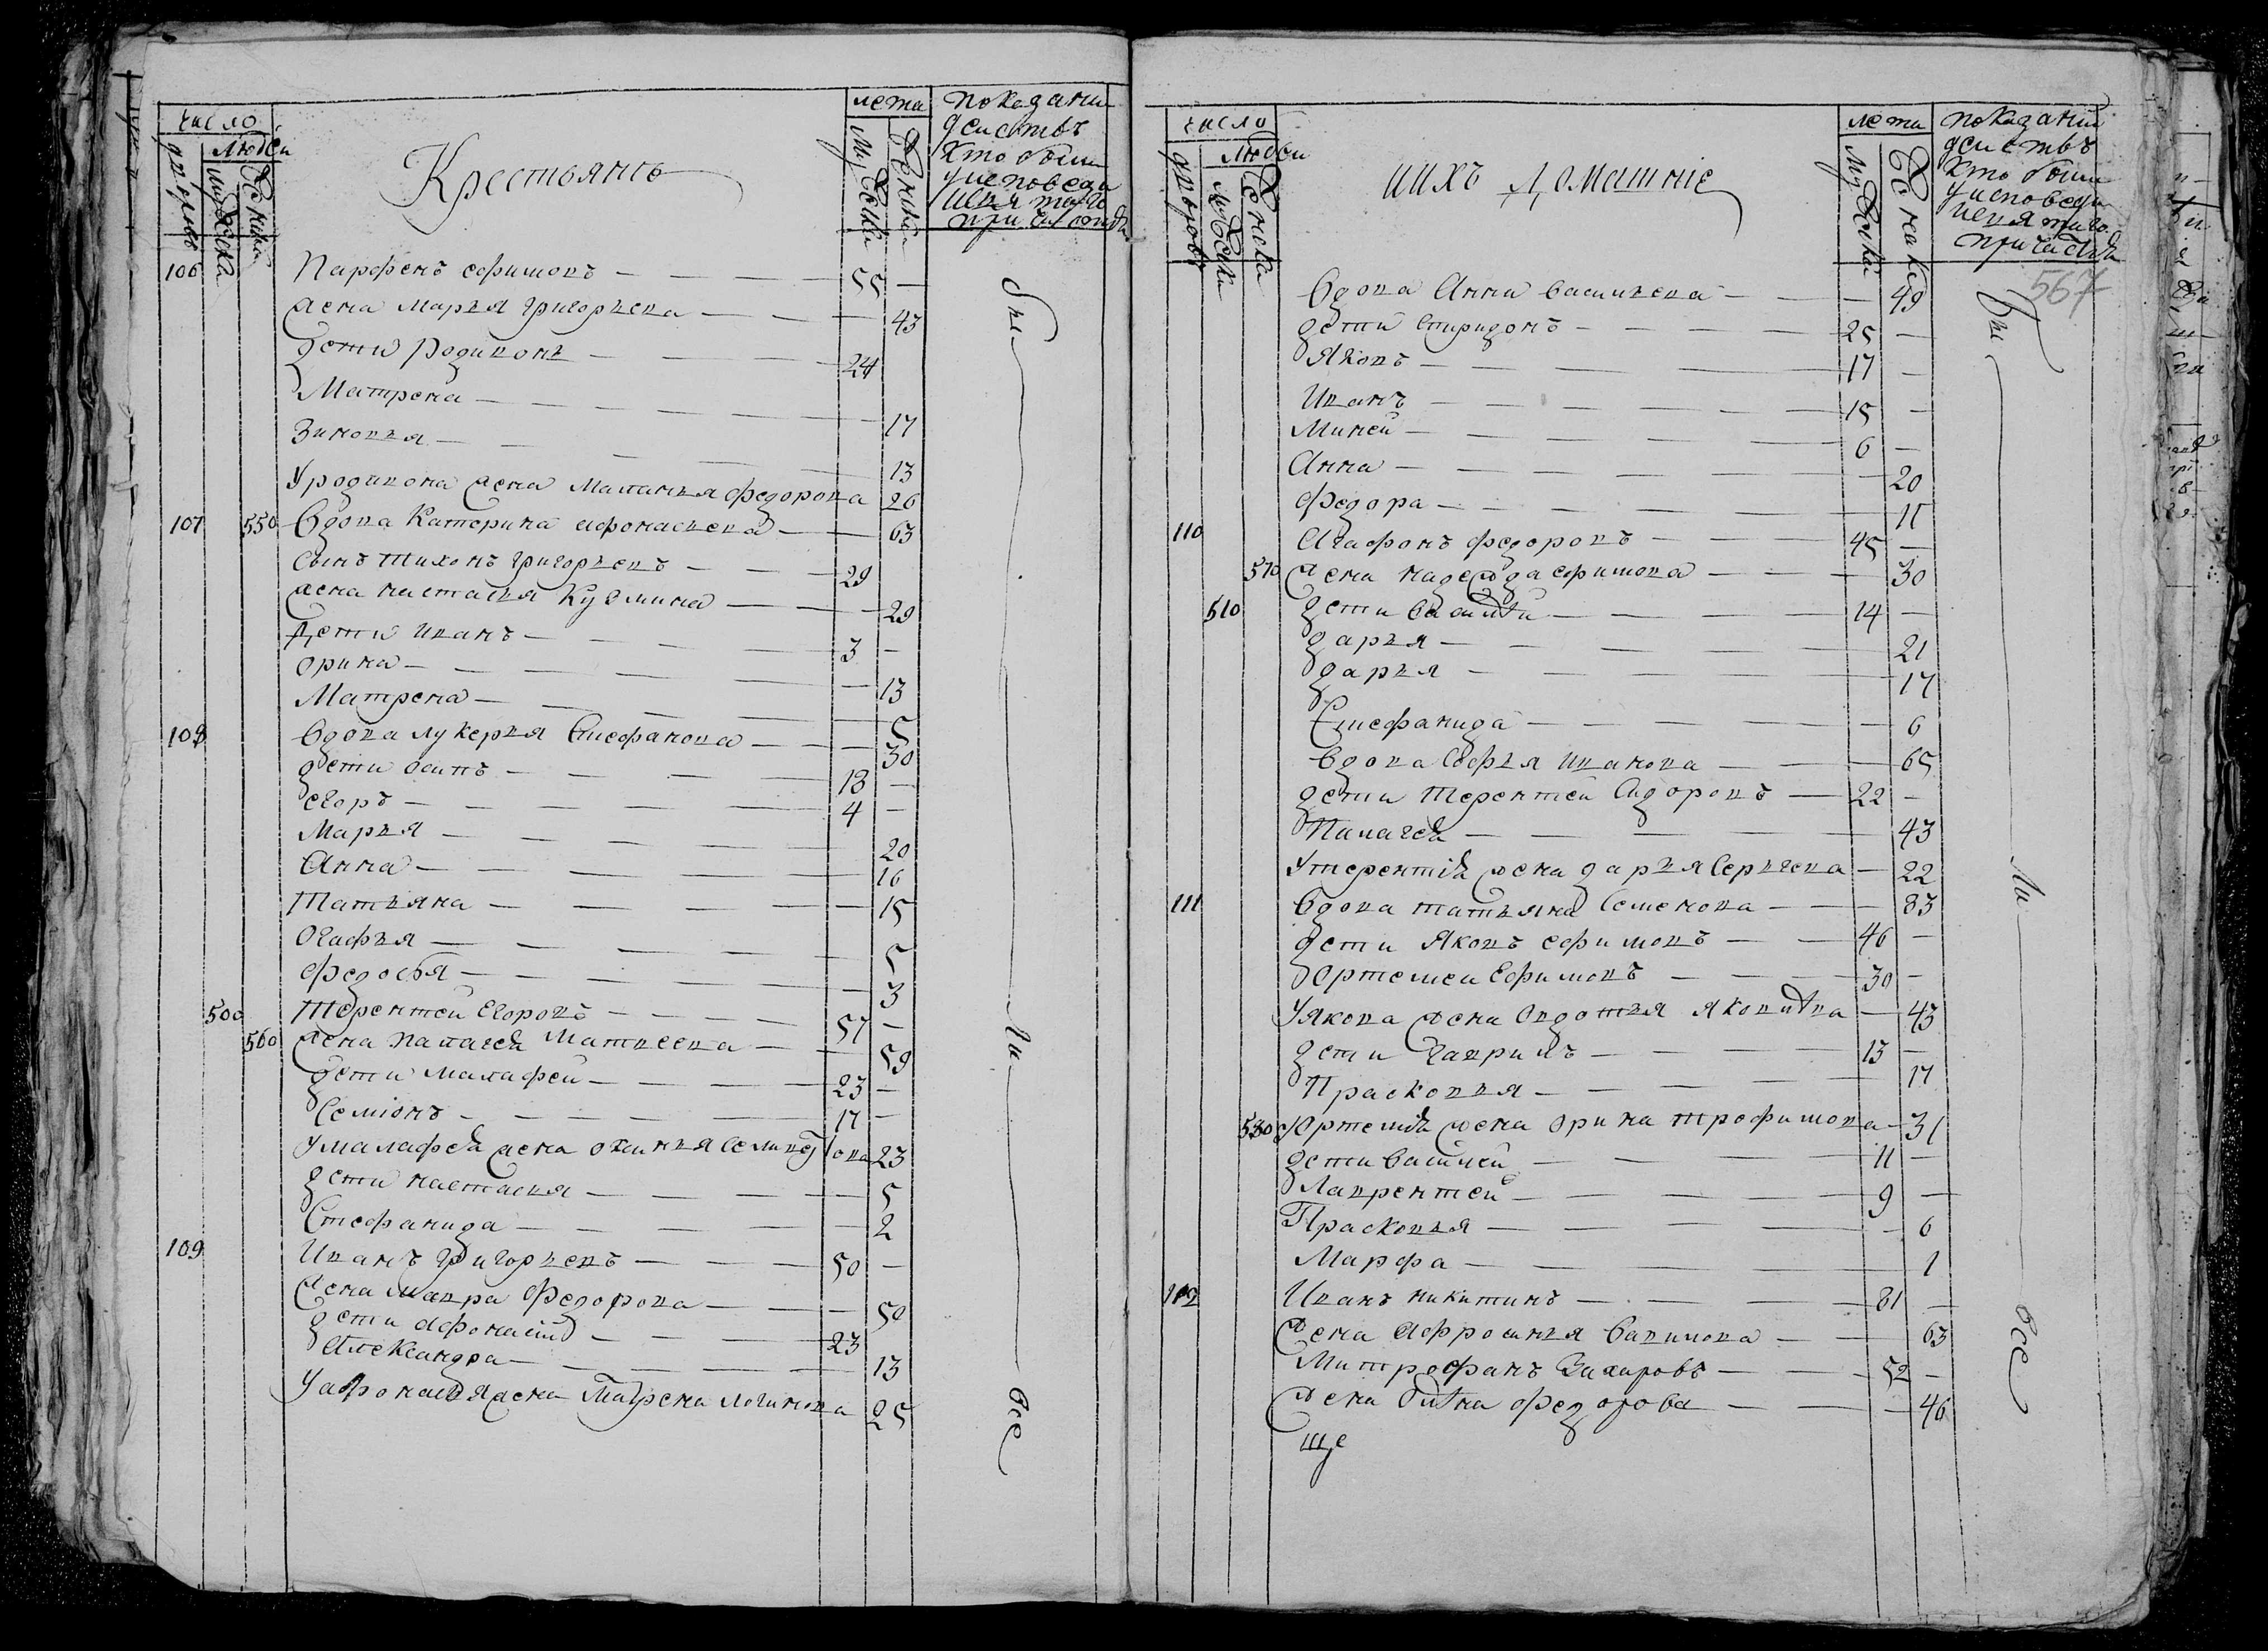 число
лета
показани
людей
действъ
дворовъ
мужеска
женска
Крестьянъ
кто были
у исповеди
и святаго
причастия
106 Парфенъ ефимовъ — 55 —
жена Марья григорьева — 43
дети Родивонъ — 24
Матрена — 17
Зиновья — 13
Уродивона жена Маланья федорова 26
107 550 вдова Катерина афонасьева — 63
сынъ тихонъ григорьевъ — 29
жена настасья Кузмина — 29
дети иванъ — 3 —
орина — 13
Матрена — 5
108 вдова лукерья Стефанова — 30
дети осипъ — 18 —
егоръ — 4 —
Марья — 20
Анна — 16
Татьяна — 15
Огафья — 5
федосья — 3
500 терентей Егоровъ — 57 —
560 жена палагея Матвеева — 59
дети малафей — 23 —
Семионъ — 17 —
умалафея жена оксинья 23
дети настасья — 5
Стефанида — 2
109 Иванъ григорьевъ — 50 —
жена мавра федорова — 50
дети афонасий — 23
Александра — 13
уафонасья жена Матрена логинова 25
Вси
ли
все
число
лета
показаний
людей
действъ
дворовъ
мужеска
женска
иихъ Домашнiе
кто были
у исповеди
и святаго
причастия
567
вдова Анна васильева — 49
дети спиридонъ — 25 —
Яковъ — 17 —
Иванъ — 15 —
Миней — 6 —
Анна — 20
федора — 11
110 Агафонъ федоровъ — 45 —
570 жена надежда ефимова — 30
510 дети василей — 14 —
дарья — 21
дарья — 17
Стефанида — 6
вдова Софья иванова — 65
дети терентей Сидоровъ — 22 —
Палагея — 43
Утерентiя жена дарья Сергеева — 22
111 вдова татьяна Семенова — 83
дети Яковъ ефимовъ — 46 —
Ортемеи Ефимовъ — 30 —
Уякова жена овдотья яковлева — 43
дети гаврилъ — 13 —
Прасковья — 17
580 уОртемья жена орина трофимова — 31
дети василей — 11 —
Лаврентей — 9 —
Прасковья — 6
Марфа — 1
112 Иванъ никитинъ — 81 —
жена Афросинья вавилова — 63
Митрофанъ Захаровъ — 52 —
жена федорова — 46
ще
Вси
ли
все